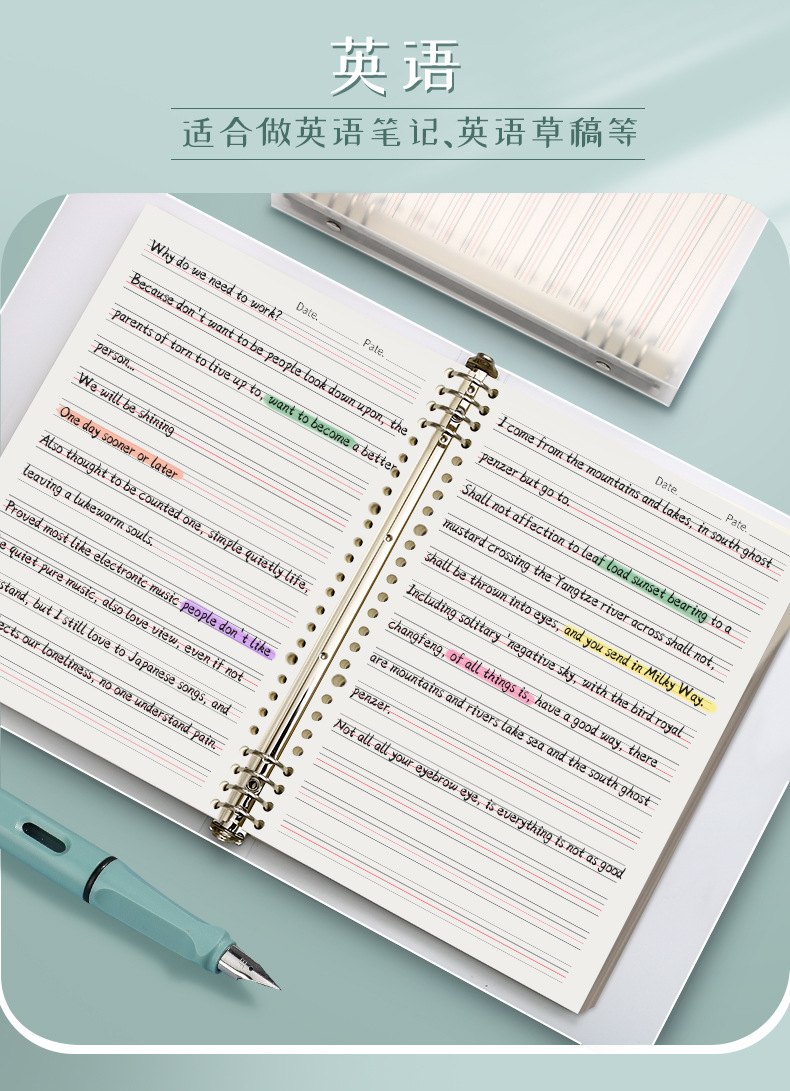 英语
适合做英语笔记、英语草稿等
Why do we need to work?
Date.
Pate.
Because don't want to be people look down upon, the
parents of torn to live up to, want to become a better
person...
We will be shining
One day sooner or later
Also thought to be counted one, simple quietly life,
leaving a lukewarm souls.
Proved most like electronic music people don't like
quiet pure music, also love view, even if not
stand, but I still love to Japanese songs, and
ects our loneliness, no one understand pain.
Date.
Pate.
I come from the mountains and lakes, in south ghost
penzer but go to.
Shall not affection to leaf load sunset bearing to a
mustard crossing the Yangtze river across shall not,
shall be thrown into eyes, and you send in Milky Way.
Including solitary 'negative sky, with the bird royal
changfeng, of all things is, have a good way, there
are mountains and rivers lake sea and the south ghost
penzer.
Not all all your eyebrow eye, is everything is not as good